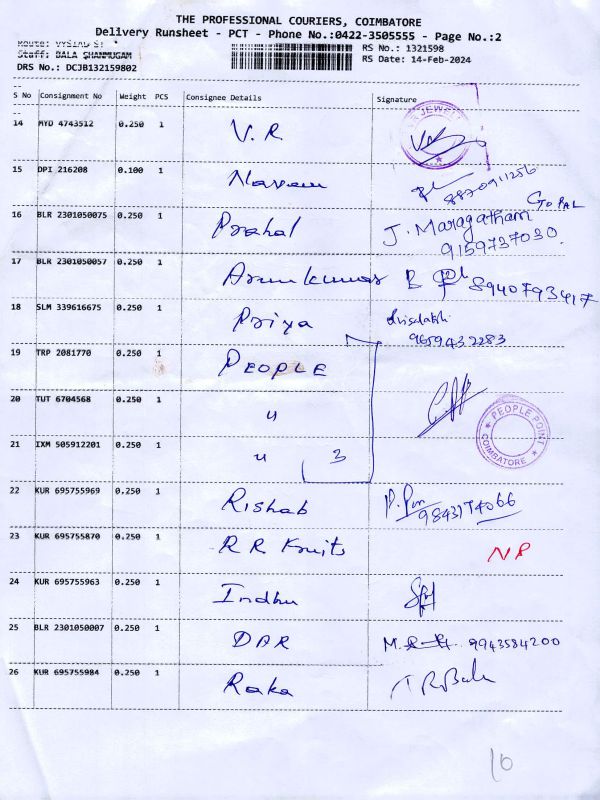 THE PROFESSIONAL COURIERS, COIMBATORE
Delivery Runsheet - PCT - Phone No.:0422-3505555 - Page No.:2
Staff: BALA SHANMUGAM
RS No.: 1321598
DRS No.: DCJB132159802
RS Date: 14-Feb-2024
S No Consignment No Weight PCS Consignee Details Signature
14 MYD 4743512 0.250 1 V.R
15 DPI 216208 0.100 1 Naveen 8870911256
16 BLR 2301050075 0.250 1 Prahal J. Maragatham GOPAL
9159737030.
17 BLR 2301050057 0.250 1 Arunkumar 8940793417
18 SLM 339616675 0.250 1 Priya
9659432283
19 TRP 2081770 0.250 1 PEOPLE
20 TUT 6704568 0.250 1 "
PEOPLE POINT
COIMBATORE
21 IXM 505912201 0.250 1 " 3
22 KUR 695755969 0.250 1 Rishab
9843174066
23 KUR 695755870 0.250 1 R R Fruits NP
24 KUR 695755963 0.250 1 Indhu
25 BLR 2301050007 0.250 1 DBR 9943584200
26 KUR 695755984 0.250 1 Raka
10